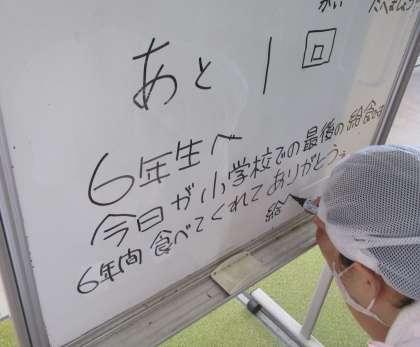 たべましょう
あと 1回
6年生へ
今日が小学校での最後の給食🍴
6年間食べてくれてありがとう
給へ